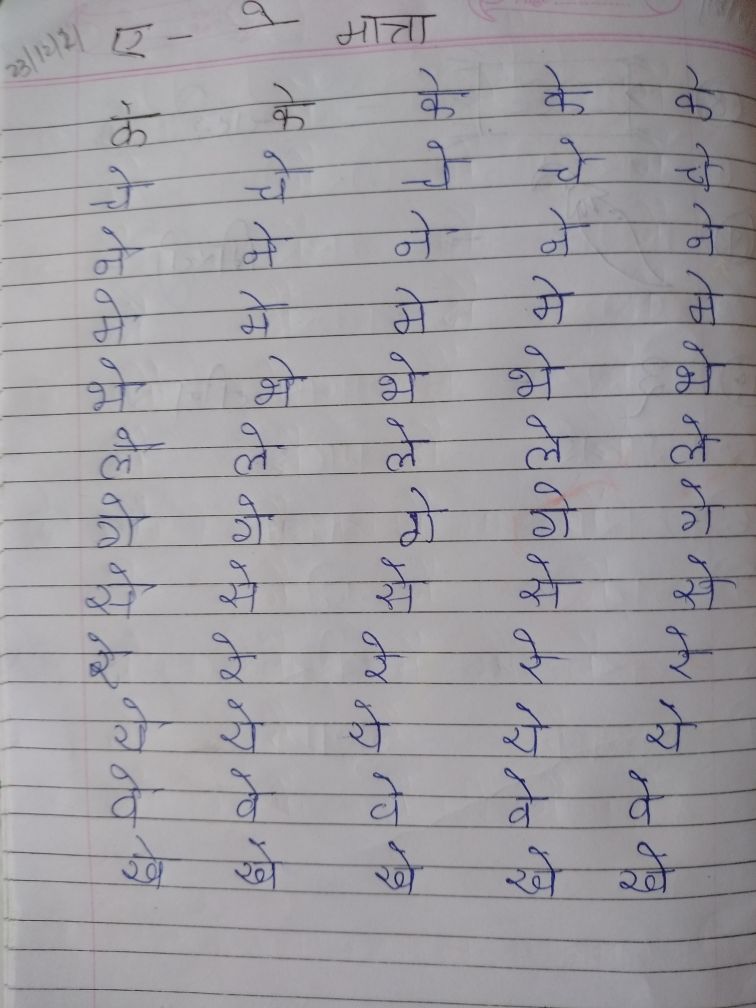 23/12/21 ए - े मात्रा
के के के के के
चे चे चे चे चे
ने ने ने ने ने
मे मे मे मे मे
भे भे भे भे भे
ले ले ले ले ले
गे गे गे गे
से से से से से
रे रे रे रे रे
ये ये ये ये ये
वे वे वे वे वे
खे खे खे खे खे